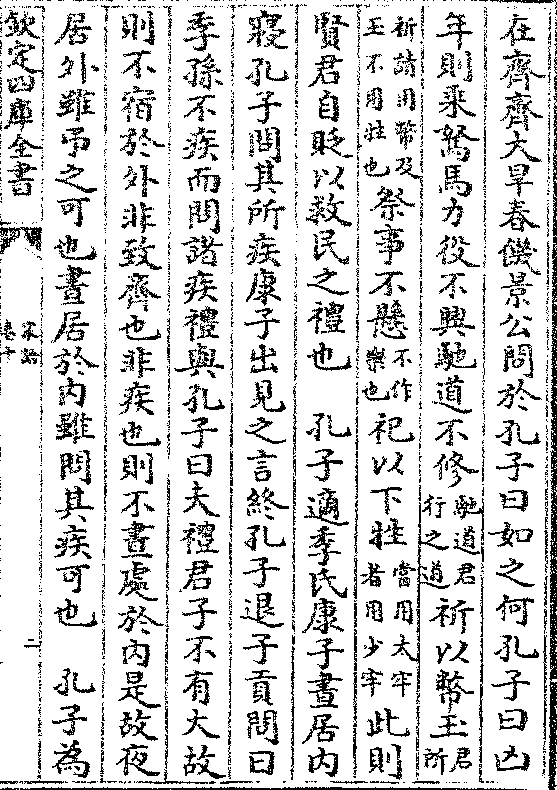 在齊齊大旱春饑景公問於孔子曰如之何孔子曰凶
年則乘駑馬力役不興馳道不修馳道君行之道祈以幣玉君所
祈請用幣及玉不用牲也祭事不懸不作樂也祀以下牲當用太牢者用少牢此則
賢君自貶以救民之禮也　孔子適季氏康子晝居内
寢孔子問其所疾康子出見之言終孔子退子貢問曰
季孫不疾而問諸疾禮與孔子曰夫禮君子不有大故
則不宿於外非致齊也非疾也則不晝處於内是故夜
居外雖弔之可也晝居於内雖問其疾可也　孔子為
欽定四庫全書　家語卷十　二